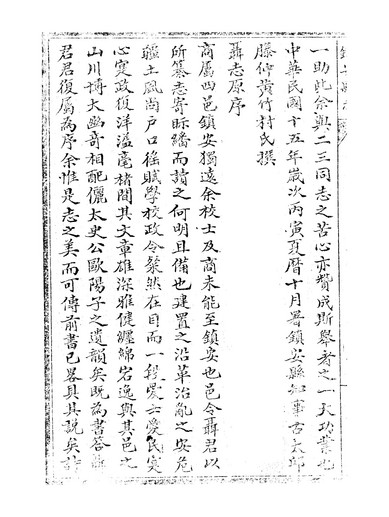 一助此余與二三同志之苦心亦贊成斯舉者之一大功業也
中華民國十五年歲次丙寅夏曆十月署鎮安縣知事古
滕仲黃竹村氏撰
聶志原序
商屬四邑鎮安獨遠余校士及商未能至鎮安也邑令聶君以
所纂志寄眎繙而讀之何明且備也建置之沿革治亂之安危
疆土風尚戶口徭賦學校政令粲然在目而一段愛士愛民實
心實政復洋溢毫楮間其文章雄深雅健纏綿宕逸與其邑之
山川博大幽奇相配儷太史公歐陽子之遺韻矣既為書答
君君復屬為序余惟是志之美而可傳前書已畧具其說矣